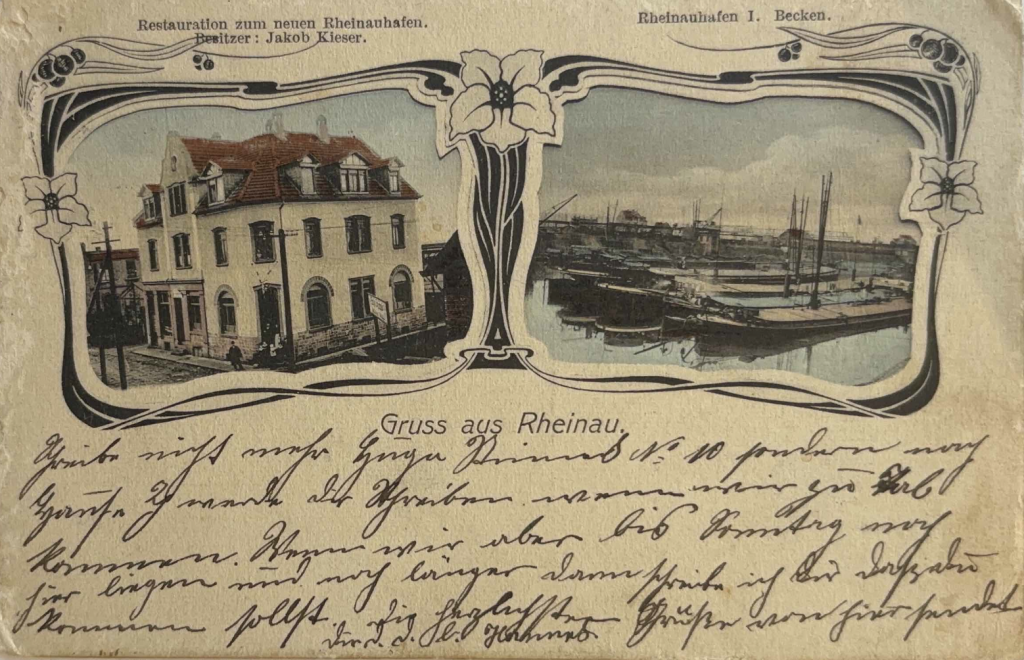 Restauration zum neuen Rheinauhafen.
Besitzer: Jakob Kieser.
Rheinauhafen I. Becken.
Gruss aus Rheinau.
Schreibe nicht mehr Hugo Stinnes No 10 sondern nach
Hause. Ich werde dir Schreiben wenn wir zu Tal
kommen. Wenn wir aber bis Sonntag noch
hier liegen und noch länger dann schreibe ich dir daß du
kommen sollst. die herzlichsten Grüße von hier sendet
Dir d. l. Hannes